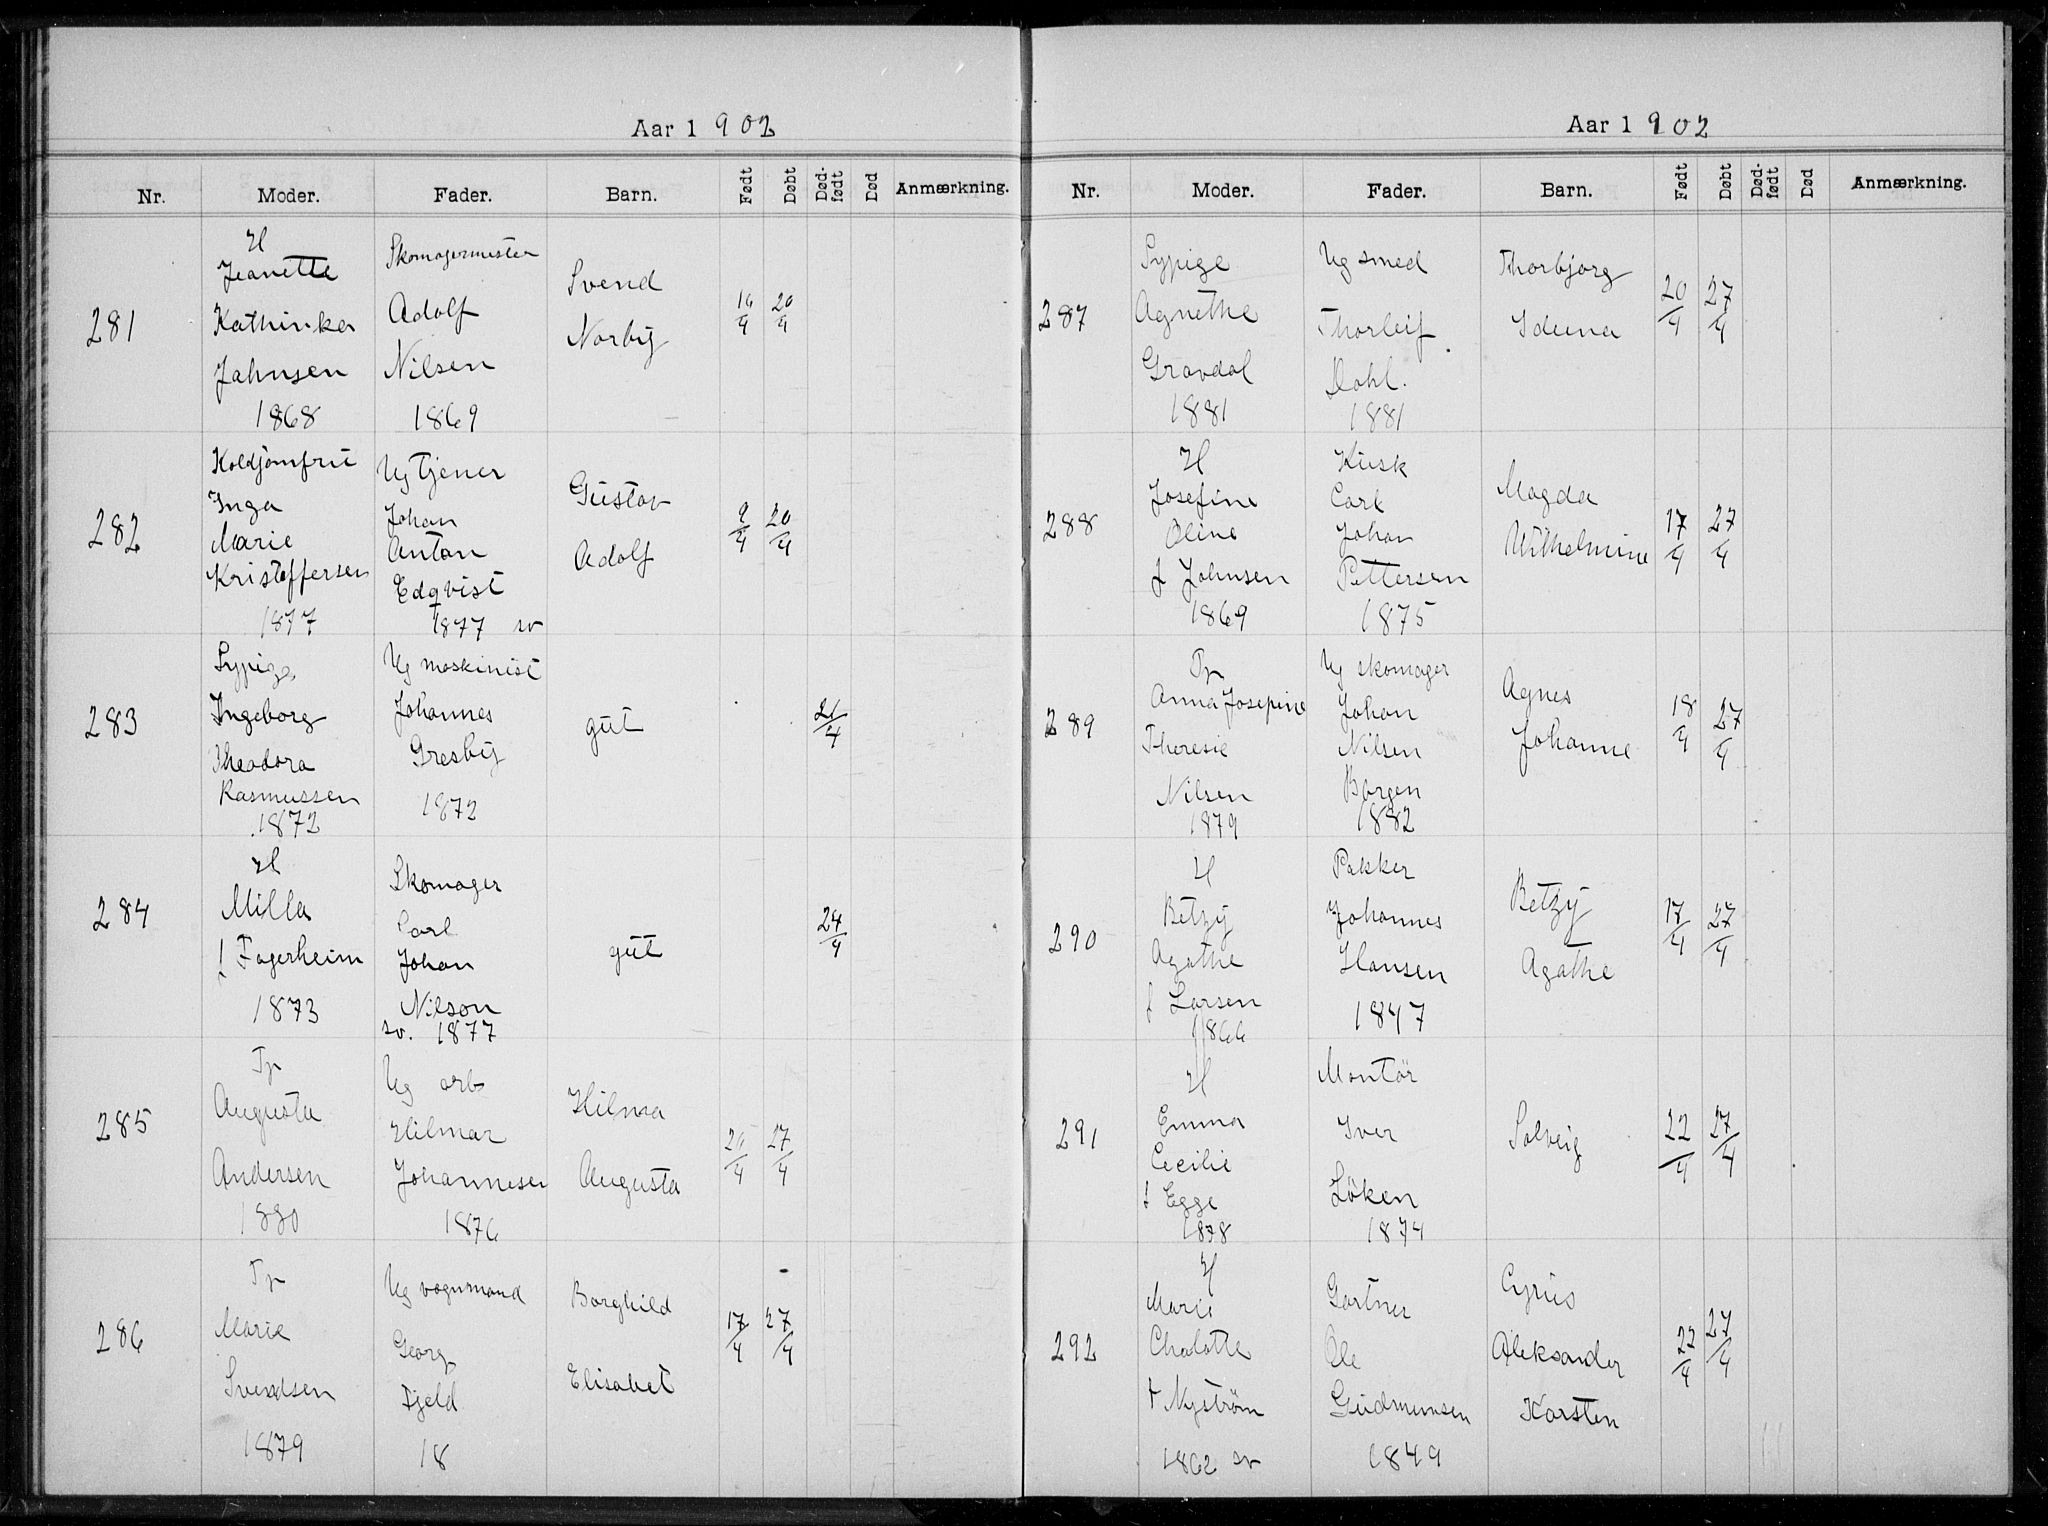 Aar 1902
Nr. Moder. Fader. Barn. Født Døbt Død-født Død Anmærkning.
281
H
Jeanette
Kathinka
Jahnsen
1868
Skomagermester
Adolf
Nilsen
1869
Svend
Norby
16/4 20/4
282
Koldjomfru
Inga
Marie
Kristoffersen
1877
Ug tjener
Johan
Anton
Edqvist
1877 sv
Gustav
Adolf
9/4 20/4
283
Sypige
Ingeborg
Theodora
Rasmussen
1872
Ug maskinist
Johannes
Gresby
1872
gut
21/4
284
H
Milla
f Fagerheim
1873
Skomager
Carl
Johan
Nilson
sv. 1877
gut
24/4
285
Tp
Augusta
Andersen
1880
Ug arb
Hilmar
Johannesen
1876
Hilma
Augusta
27/4
286
Tp
Marie
Svendsen
1879
Ug vognmand
Georg
Fjeld
18
Borghild
Elisabet
17/4 27/4
Aar 1902
Nr. Moder. Fader. Barn. Født Døbt Død-født Død Anmærkning.
287
Sypige
Agnethe
Gravdal
1881
Ug smed
Thorleif
Dahl.
1881
Thorbjorg
Iduna
20/4 27/4
288
H
Josefine
Oline
f Johnsen
1869
Kusk
Carl
Johan
Pettersen
1875
Magda
Wilhelmine
17/4 27/4
289
Tp
Anna Josepine
Theresie
Nilsen
1879
Ug skomager
Johan
Nilsen
Borgen
1882
Agnes
Johanne
18/4 27/4
290
H
Betzy
Agathe
f Larsen
1866
Pakker
Johannes
Hansen
1847
Betzy
Agathe
17/4 27/4
291
H
Emma
Cecilie
f Egge
1878
Montör
Iver
Löken
1874
Solveig
22/4 27/4
292
H
Marie
Chalotte
f Nyström
1862 sv
Gartner
Ole
Gudmunsen
1849
Cyrus
Aleksander
Karsten
22/4 27/4